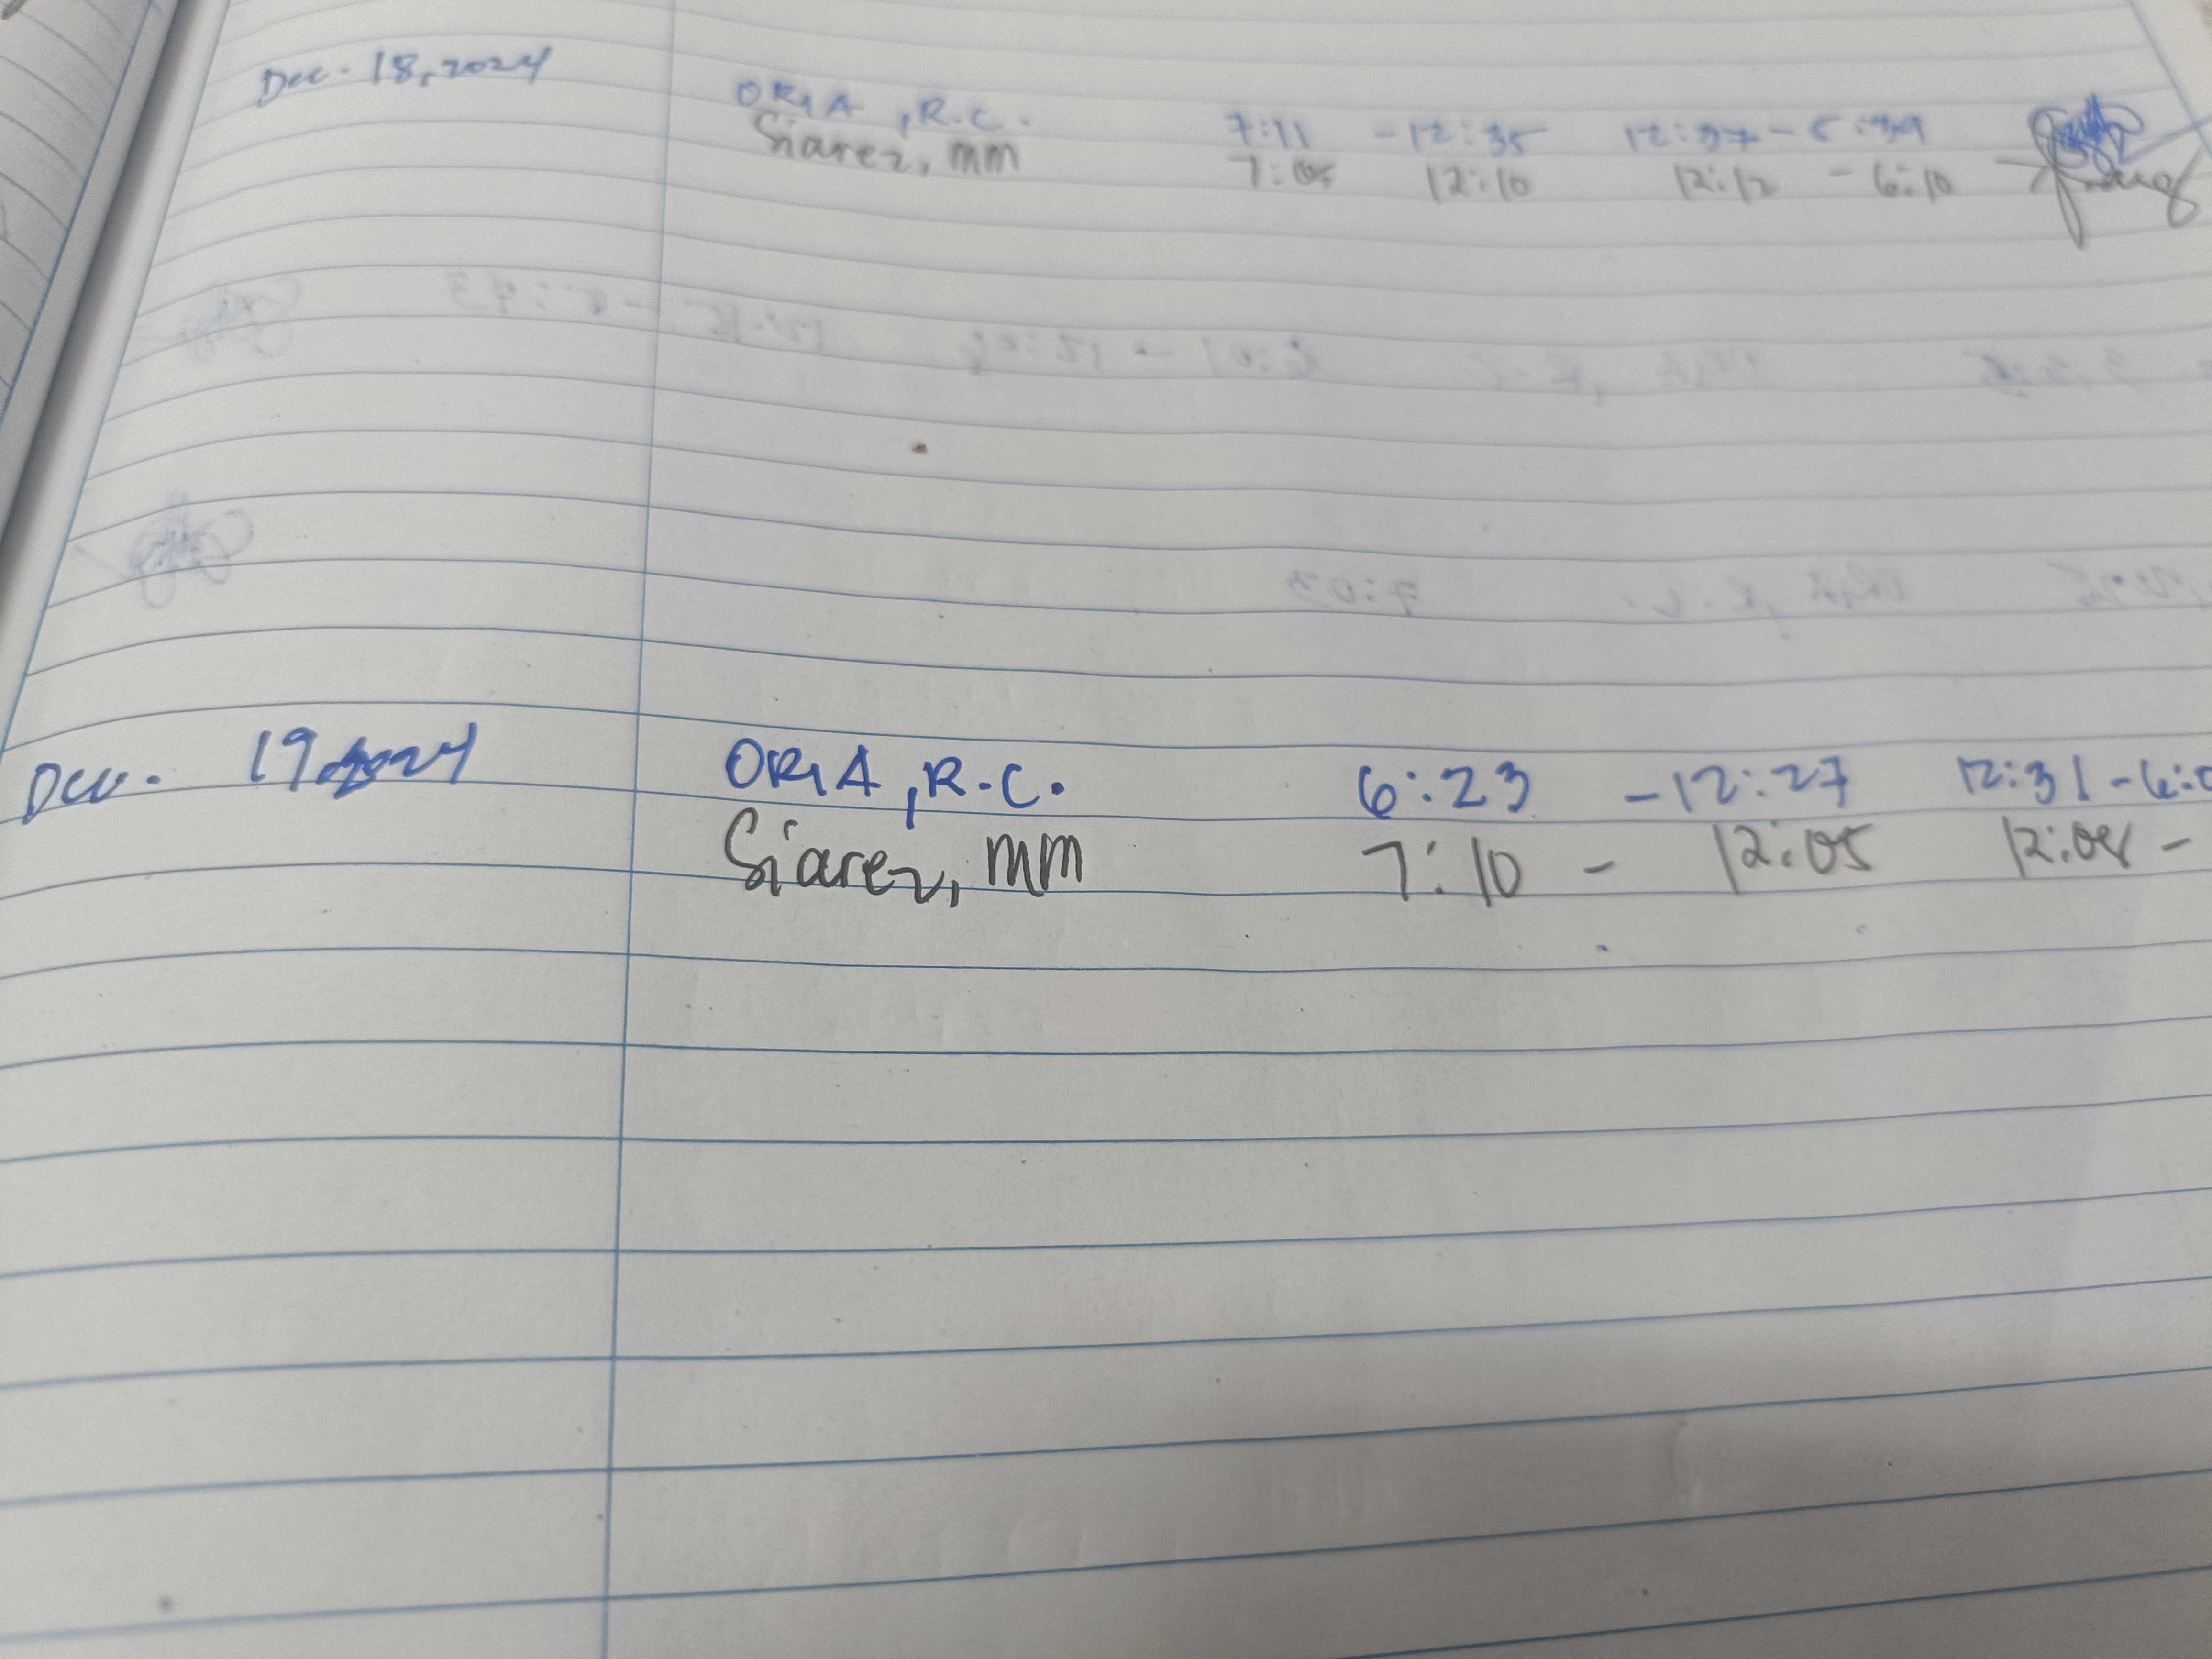 Dec. 18, 2024
ORIA, R.C. 7:11 - 12:35 12:37 - 5:39
Siarez, mm 7:05 12:10 12:12 - 6:10
Dec. 19 2024 ORIA, R.C. 6:23 - 12:27 12:31 - 6:0
Siarez, mm 7:10 - 12:05 12:08 -